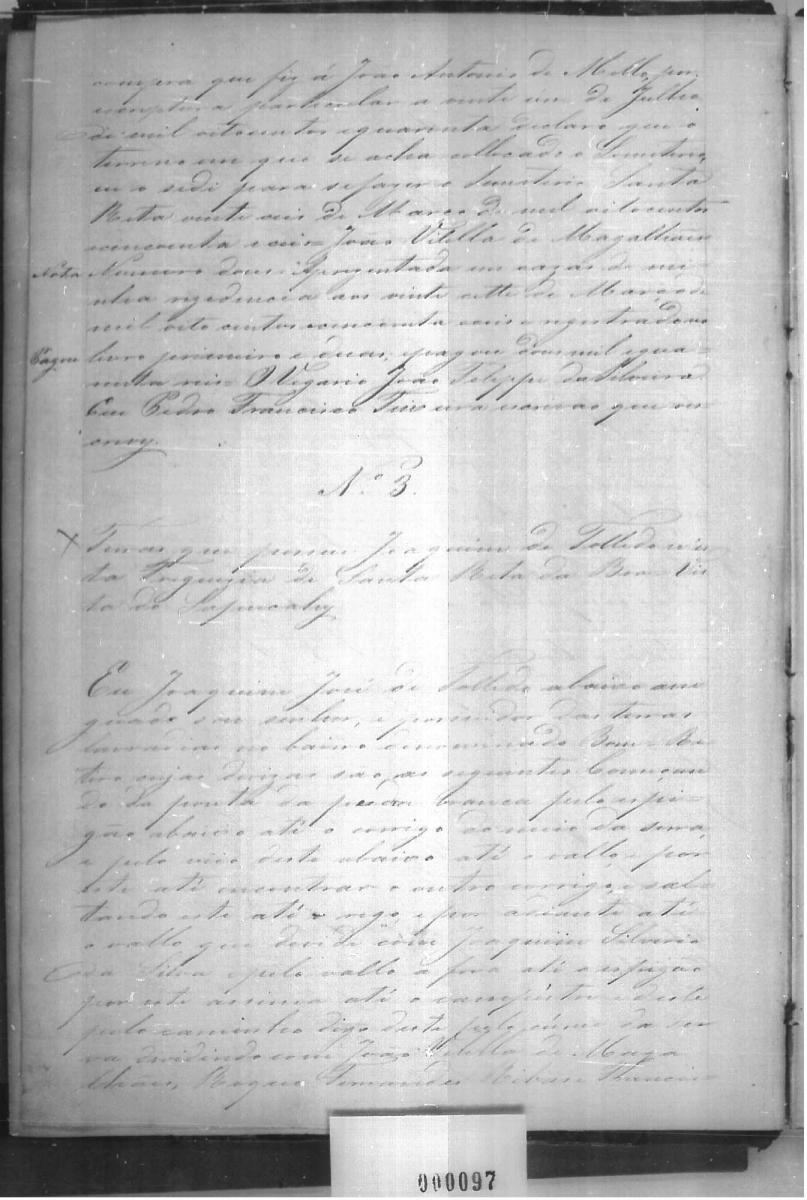 compra que fiz á João Antonio de Mello, por
escriptura particular a vinte um de Julho
de mil oitocentos e quarenta declaro que o
terreno em que se acha collocado o Semiterio,
eu o sedi para se fazer o Semiterio Santa
Rita vinte ceis de Março de mil oitocentos
concoenta e ceis = João Vilella de Magalhães
Nota Numero dous Aprezentada em cazas de mi-
nha rezidencia aos vinte cette de Março de
mil oito centos concoenta e ceis e registrado no
Pagou livro primeiro e duas, e pagou dous mil e qua-
renta reis = O Vigario João Felippe da Silveira
Eu Pedro Francisco Teixeira escrivão que es-
crevy.
N.º 3.
Terras que possue Joaquim de Tolledo nes-
ta Freguezia de Santa Rita da Boa Vis
ta do Sapucahy
Eu Joaquim José de Tolledo abaixo assi
gnado sou senhor, e possuidor das terras
lavradias no bairro denominado Bom Re-
tiro cujas divizas são as seguintes Começan
do da ponta da pedra branca pelo espi-
gão abaixo até o corrigo do meio da serra
e pelo viio deste abaixo até o vallo e por
este até encontrar o outro corrigo, e sal-
tando este até o rego, e por adiante até
o vallo que devide com Joaquim Silverio
da Silva e pelo vallo a fora até o espigão
por este assima até o campestre e deste
pelo caminho digo deste pelo cume da ser
ra dividindo com João Vilella de Maga
lhães, Roque Fernandes Ribas Francis-
000097